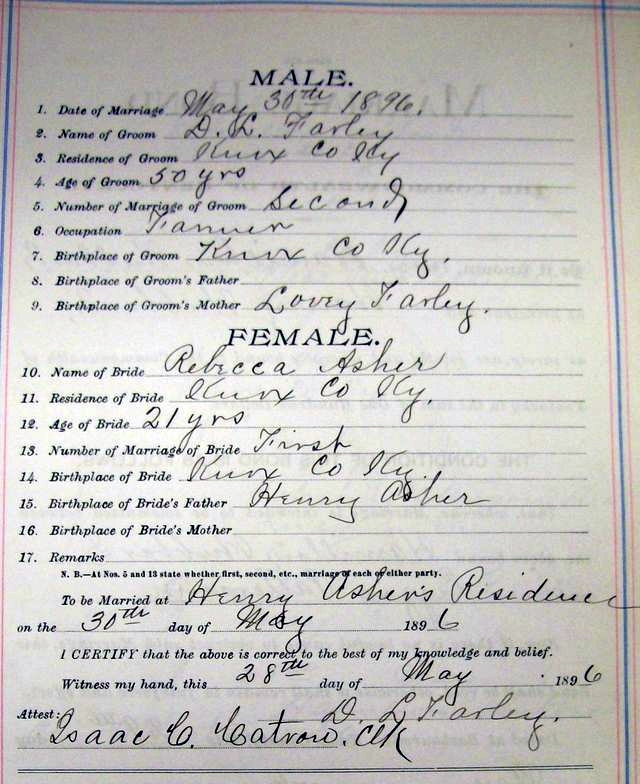 MALE.
1. Date of Marriage May 30th 1896.
2. Name of Groom D. L. Farley
3. Residence of Groom Knox Co Ky
4. Age of Groom 50 yrs
5. Number of Marriage of Groom Second
6. Occupation Farmer
7. Birthplace of Groom Knox Co Ky.
8. Birthplace of Groom's Father
9. Birthplace of Groom's Mother Lovey Farley.
FEMALE.
10. Name of Bride Rebecca Asher
11. Residence of Bride Knox Co Ky.
12. Age of Bride 21 yrs
13. Number of Marriage of Bride First
14. Birthplace of Bride Knox Co Ky
15. Birthplace of Bride's Father Henry Asher
16. Birthplace of Bride's Mother
17. Remarks
N. B.—At Nos. 5 and 13 state whether first, second, etc., marriage of each of either party.
To be Married at Henry Asher's Residence
on the 30th day of May 1896
I CERTIFY that the above is correct to the best of my knowledge and belief.
Witness my hand, this 28th day of May 1896
D. L Farley.
Attest:
Isaac C. Catron. Clk